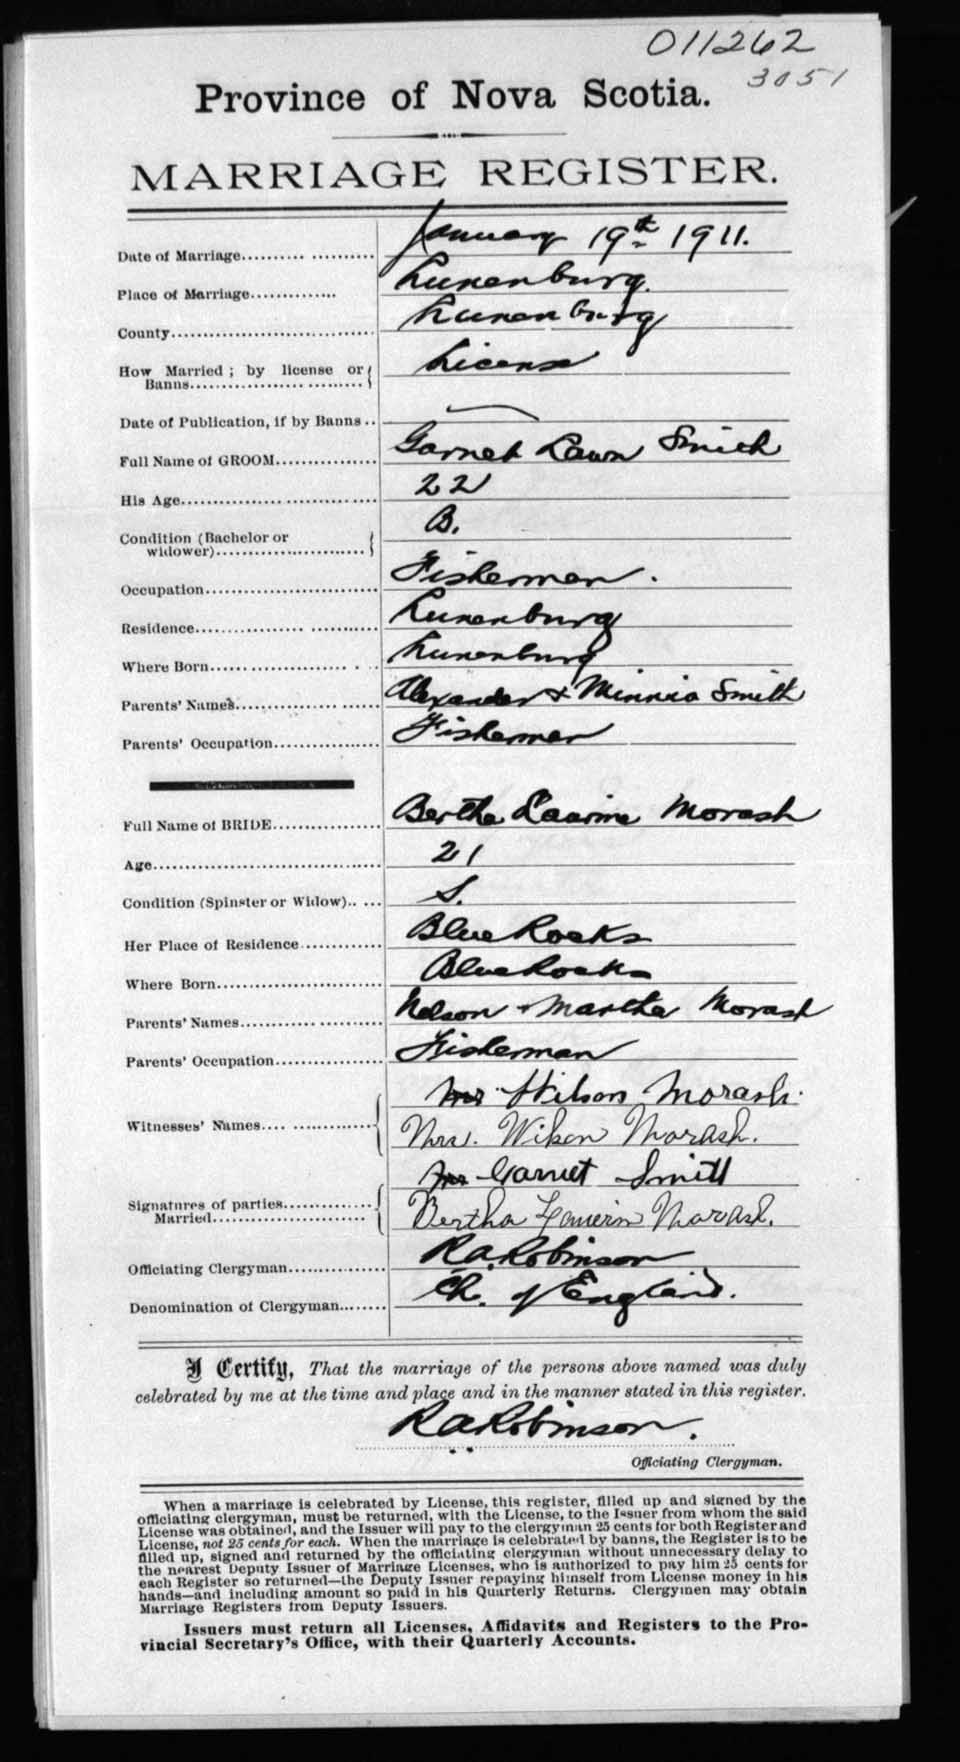 011262
3051
Province of Nova Scotia.
MARRIAGE REGISTER.
Date of Marriage.......... .......... January 19th 1911.
Place of Marriage............. Lunenburg.
County............................ Lunenburg
How Married ; by license or License
Banns.................. ........
Date of Publication, if by Banns .. —
Full Name of GROOM.............. Garnet Smith
His Age.................. ............ 22
Condition (Bachelor or B.
widower)......................
Occupation........................ Fisherman.
Residence............... ........... Lunenburg
Where Born..................... . .. Lunenburg
Parents' Names................ ...... Alexander & Minnie Smith
Parents' Occupation............... Fisherman
Full Name of BRIDE................ Bertha Morash
Age................................. 21
Condition (Spinster or Widow).. ... S.
Her Place of Residence............ Blue Rocks
Where Born....................... Blue Rocks
Parents' Names................ ...... Nelson + Martha Morash
Parents' Occupation............... Fisherman
Mr. Wilson Morash.
Witnesses' Names.... ............. Mrs. Wilson Morash.
Mr Garnet Smith
Signatures of parties.............
Married....................... Bertha Morash.
Officiating Clergyman.............. R.A. Robinson
Denomination of Clergyman........ Ch. of England.
I Certify, That the marriage of the persons above named was duly
celebrated by me at the time and place and in the manner stated in this register.
R A Robinson.
Officiating Clergyman.
When a marriage is celebrated by License, this register, filled up and signed by the
officiating clergyman, must be returned, with the License, to the Issuer from whom the said
License was obtained, and the Issuer will pay to the clergyman 25 cents for both Register and
License, not 25 cents for each. When the marriage is celebrated by banns, the Register is to be
filled up, signed and returned by the officiating clergyman without unnecessary delay to
the nearest Deputy Issuer of Marriage Licenses, who is authorized to pay him 25 cents for
each Register so returned—the Deputy Issuer repaying himself from License money in his
hands—and including amount so paid in his Quarterly Returns. Clergymen may obtain
Marriage Registers from Deputy Issuers.
Issuers must return all Licenses, Affidavits and Registers to the Pro-
vincial Secretary's Office, with their Quarterly Accounts.